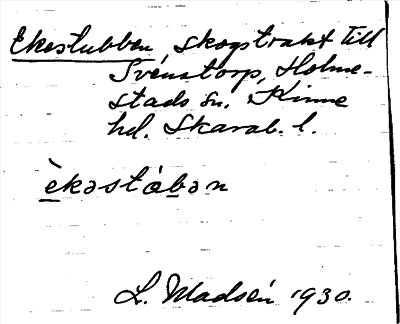 Ekestubben, skogstrakt till
Svenstorp, Holme-
stads sn. Kinne
hd. Skarab. l.
èkəstábən
L. Madsén 1930.